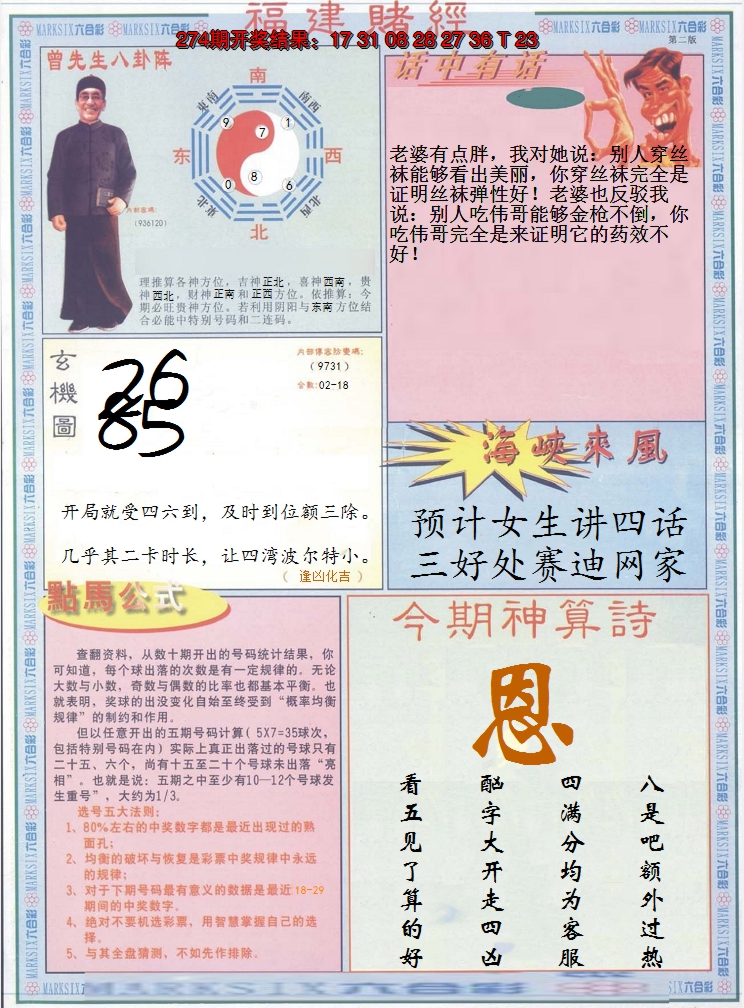 福建賭經
274期开奖结果：17 31 08 28 27 36 T 23
第二版
MARKSIX六合彩
曾先生八卦阵
南
东南
南西
9
7
1
东
西
0
8
6
東北
北西
北
内部密碼：
（936120）
理推算各神方位，吉神正北，喜神西南，贵
神西北，财神正南和正西方位。依推算：今
期必旺贵神方位。若利用阴阳与东南方位结
合必能中特别号码和二连码。
话中有话
老婆有点胖，我对她说：别人穿丝
袜能够看出美丽，你穿丝袜完全是
证明丝袜弹性好！老婆也反驳我
说：别人吃伟哥能够金枪不倒，你
吃伟哥完全是来证明它的药效不
好！
玄機圖
26
85
内部傳密防變碼：
（9731）
合數：02-18
开局就受四六到，及时到位额三除。
几乎其二卡时长，让四湾波尔特小。
（ 逢凶化吉 ）
海峽來風
预计女生讲四话
三好处赛迪网家
點馬公式
查翻资料，从数十期开出的号码统计结果，你
可知道，每个球出落的次数是有一定规律的。无论
大数与小数，奇数与偶数的比率也都基本平衡。也
就表明，奖球的出没变化自始至终受到“概率均衡
规律”的制约和作用。
但以任意开出的五期号码计算（5X7=35球次，
包括特别号码在内）实际上真正出落过的号球只有
二十五、六个，尚有十五至二十个号球未出落“亮
相”。也就是说：五期之中至少有10—12个号球发
生重号”，大约为1/3。
选号五大法则：
1、80%左右的中奖数字都是最近出现过的熟
面孔；
2、均衡的破坏与恢复是彩票中奖规律中永远
的规律；
3、对于下期号码最有意义的数据是最近18-29
期间的中奖数字。
4、绝对不要机选彩票，用智慧掌握自己的选
择。
5、与其全盘猜测，不如先作排除。
今期神算詩
恩
看五见了算的好
酗字大开走四凶
四满分均为客服
八是吧额外过热